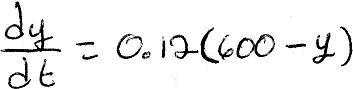 dy/dt = 0.12(600-y)